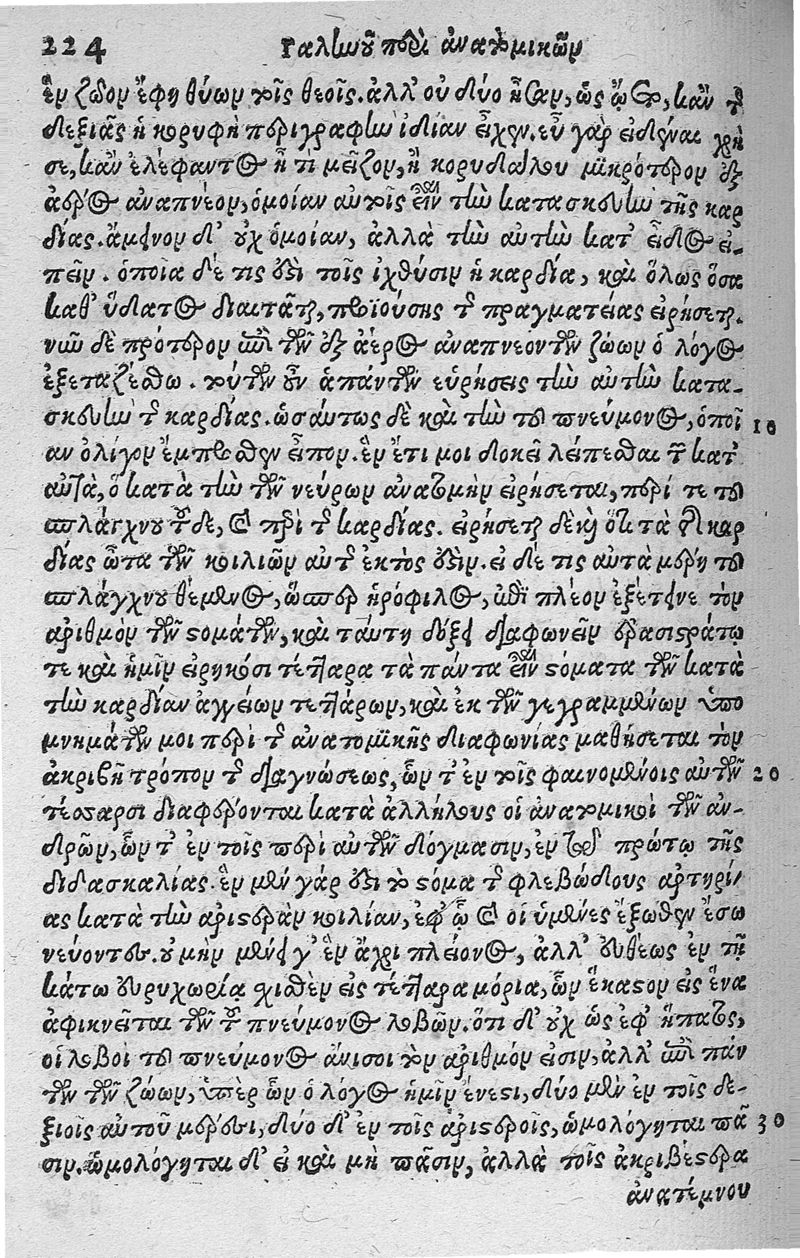 224 Γαληνοῦ περὶ ἀνατομικῶν
ἓν ζῷον ἔφη θύων τοῖς θεοῖς. ἀλλ' οὐ δύο ἦσαν, ὡς ᾤετο, κἂν τῆς
δεξιᾶς ἡ κορυφὴ περιγραφὴν ἰδίαν εἶχεν. εὖ γὰρ εἰδέναι χρή
σε, κἂν ἐλέφαντος ᾖ τι μεῖζον, ἢ κορυδαλλοῦ μικρότερον ἐξ
ἀέρος ἀναπνέον, ὁμοίαν αὐτοῖς εἶναι τὴν κατασκευὴν τῆς καρ
δίας. ἄμεινον δ' οὐχ ὁμοίαν, ἀλλὰ τὴν αὐτὴν κατ' εἶδος εἰ-
πεῖν. ὁποία δέ τις ἐστὶ τοῖς ἰχθύσιν ἡ καρδία, καὶ ὅλως ὅσα
καθ' ὕδατος διαιτᾶται, προϊούσης τῆς πραγματείας εἰρήσεται.
νῦν δὲ πρότερον ἐπὶ τῶν ἐξ ἀέρος ἀναπνεόντων ζώων ὁ λόγος
ἐξεταζέσθω. τούτων οὖν ἁπάντων εὑρήσεις τὴν αὐτὴν κατα-
σκευὴν τῆς καρδίας. ὡσαύτως δὲ καὶ τὴν τοῦ πνεύμονος, ὁποῖ 10
αν ὀλίγον ἔμπροσθεν εἶπον. ἓν ἔτι μοι δοκεῖ λείπεσθαι τῶν κατ'
αὐτὰ, ὃ κατὰ τὴν τῶν νεύρων ἀνατομὴν εἰρήσεται, περί τε τοῦ
σπλάγχνου τοῦδε, καὶ περὶ τῆς καρδίας. εἰρήσεται δὲ καὶ ὅτι τὰ τῆς καρ
δίας ὦτα τῶν κοιλιῶν αὐτῆς ἐκτός ἐστιν. εἰ δέ τις αὐτὰ μέρη τοῦ
σπλάγχνου θέμενος, ὥσπερ ἡρόφιλος, ἐπὶ πλέον ἐξέτεινε τὸν
ἀριθμὸν τῶν στομάτων, καὶ ταύτῃ δόξει διαφωνεῖν ἐρασιστράτῳ
τε καὶ ἡμῖν εἰρηκόσι τέτταρα τὰ πάντα εἶναι στόματα τῶν κατὰ
τὴν καρδίαν ἀγγείων τεττάρων, καὶ ἐκ τῶν γεγραμμένων ὑπο
μνημάτων μοι περὶ τῆς ἀνατομικῆς διαφωνίας μαθήσεται τὸν
ἀκριβῆ τρόπον τῆς διαγνώσεως, ὧν τ' ἐν τοῖς φαινομένοις αὐτῶν 20
τέσσαρσι διαφέρονται κατὰ ἀλλήλους οἱ ἀνατομικοὶ τῶν ἀν-
δρῶν, ὧν τ' ἐν τοῖς περὶ αὐτῶν δόγμασιν, ἐν τῷ πρώτῳ τῆς
διδασκαλίας. ἓν μὲν γάρ ἐστι τὸ στόμα τῆς φλεβώδους ἀρτηρί-
ας κατὰ τὴν ἀριστερὰν κοιλίαν, ἐφ' ᾧ καὶ οἱ ὑμένες ἔξωθεν ἔσω
νεύοντες. οὐ μὴν μένει γ' ἓν ἄχρι πλείονος, ἀλλ' εὐθέως ἐν τῇ
κάτω εὐρυχωρίᾳ σχισθὲν εἰς τέτταρα μόρια, ὧν ἕκαστον εἰς ἕνα
ἀφικνεῖται τῶν τοῦ πνεύμονος λοβῶν. ὅτι δ' οὐχ ὡς ἐφ' ἥπατος,
οἱ λοβοὶ τοῦ πνεύμονος ἄνισοι τὸν ἀριθμόν εἰσιν, ἀλλ' ἐπὶ πάν
των τῶν ζώων, ὑπὲρ ὧν ὁ λόγος ἡμῖν ἐνέστι, δύο μὲν ἐν τοῖς δε-
ξιοῖς αὐτοῦ μέρεσι, δύο δ' ἐν τοῖς ἀριστεροῖς, ὡμολόγηται πᾶ 30
σιν. ὡμολόγηται δ' εἰ καὶ μὴ πᾶσιν, ἀλλὰ τοῖς ἀκριβέστερα
ἀνατέμνου